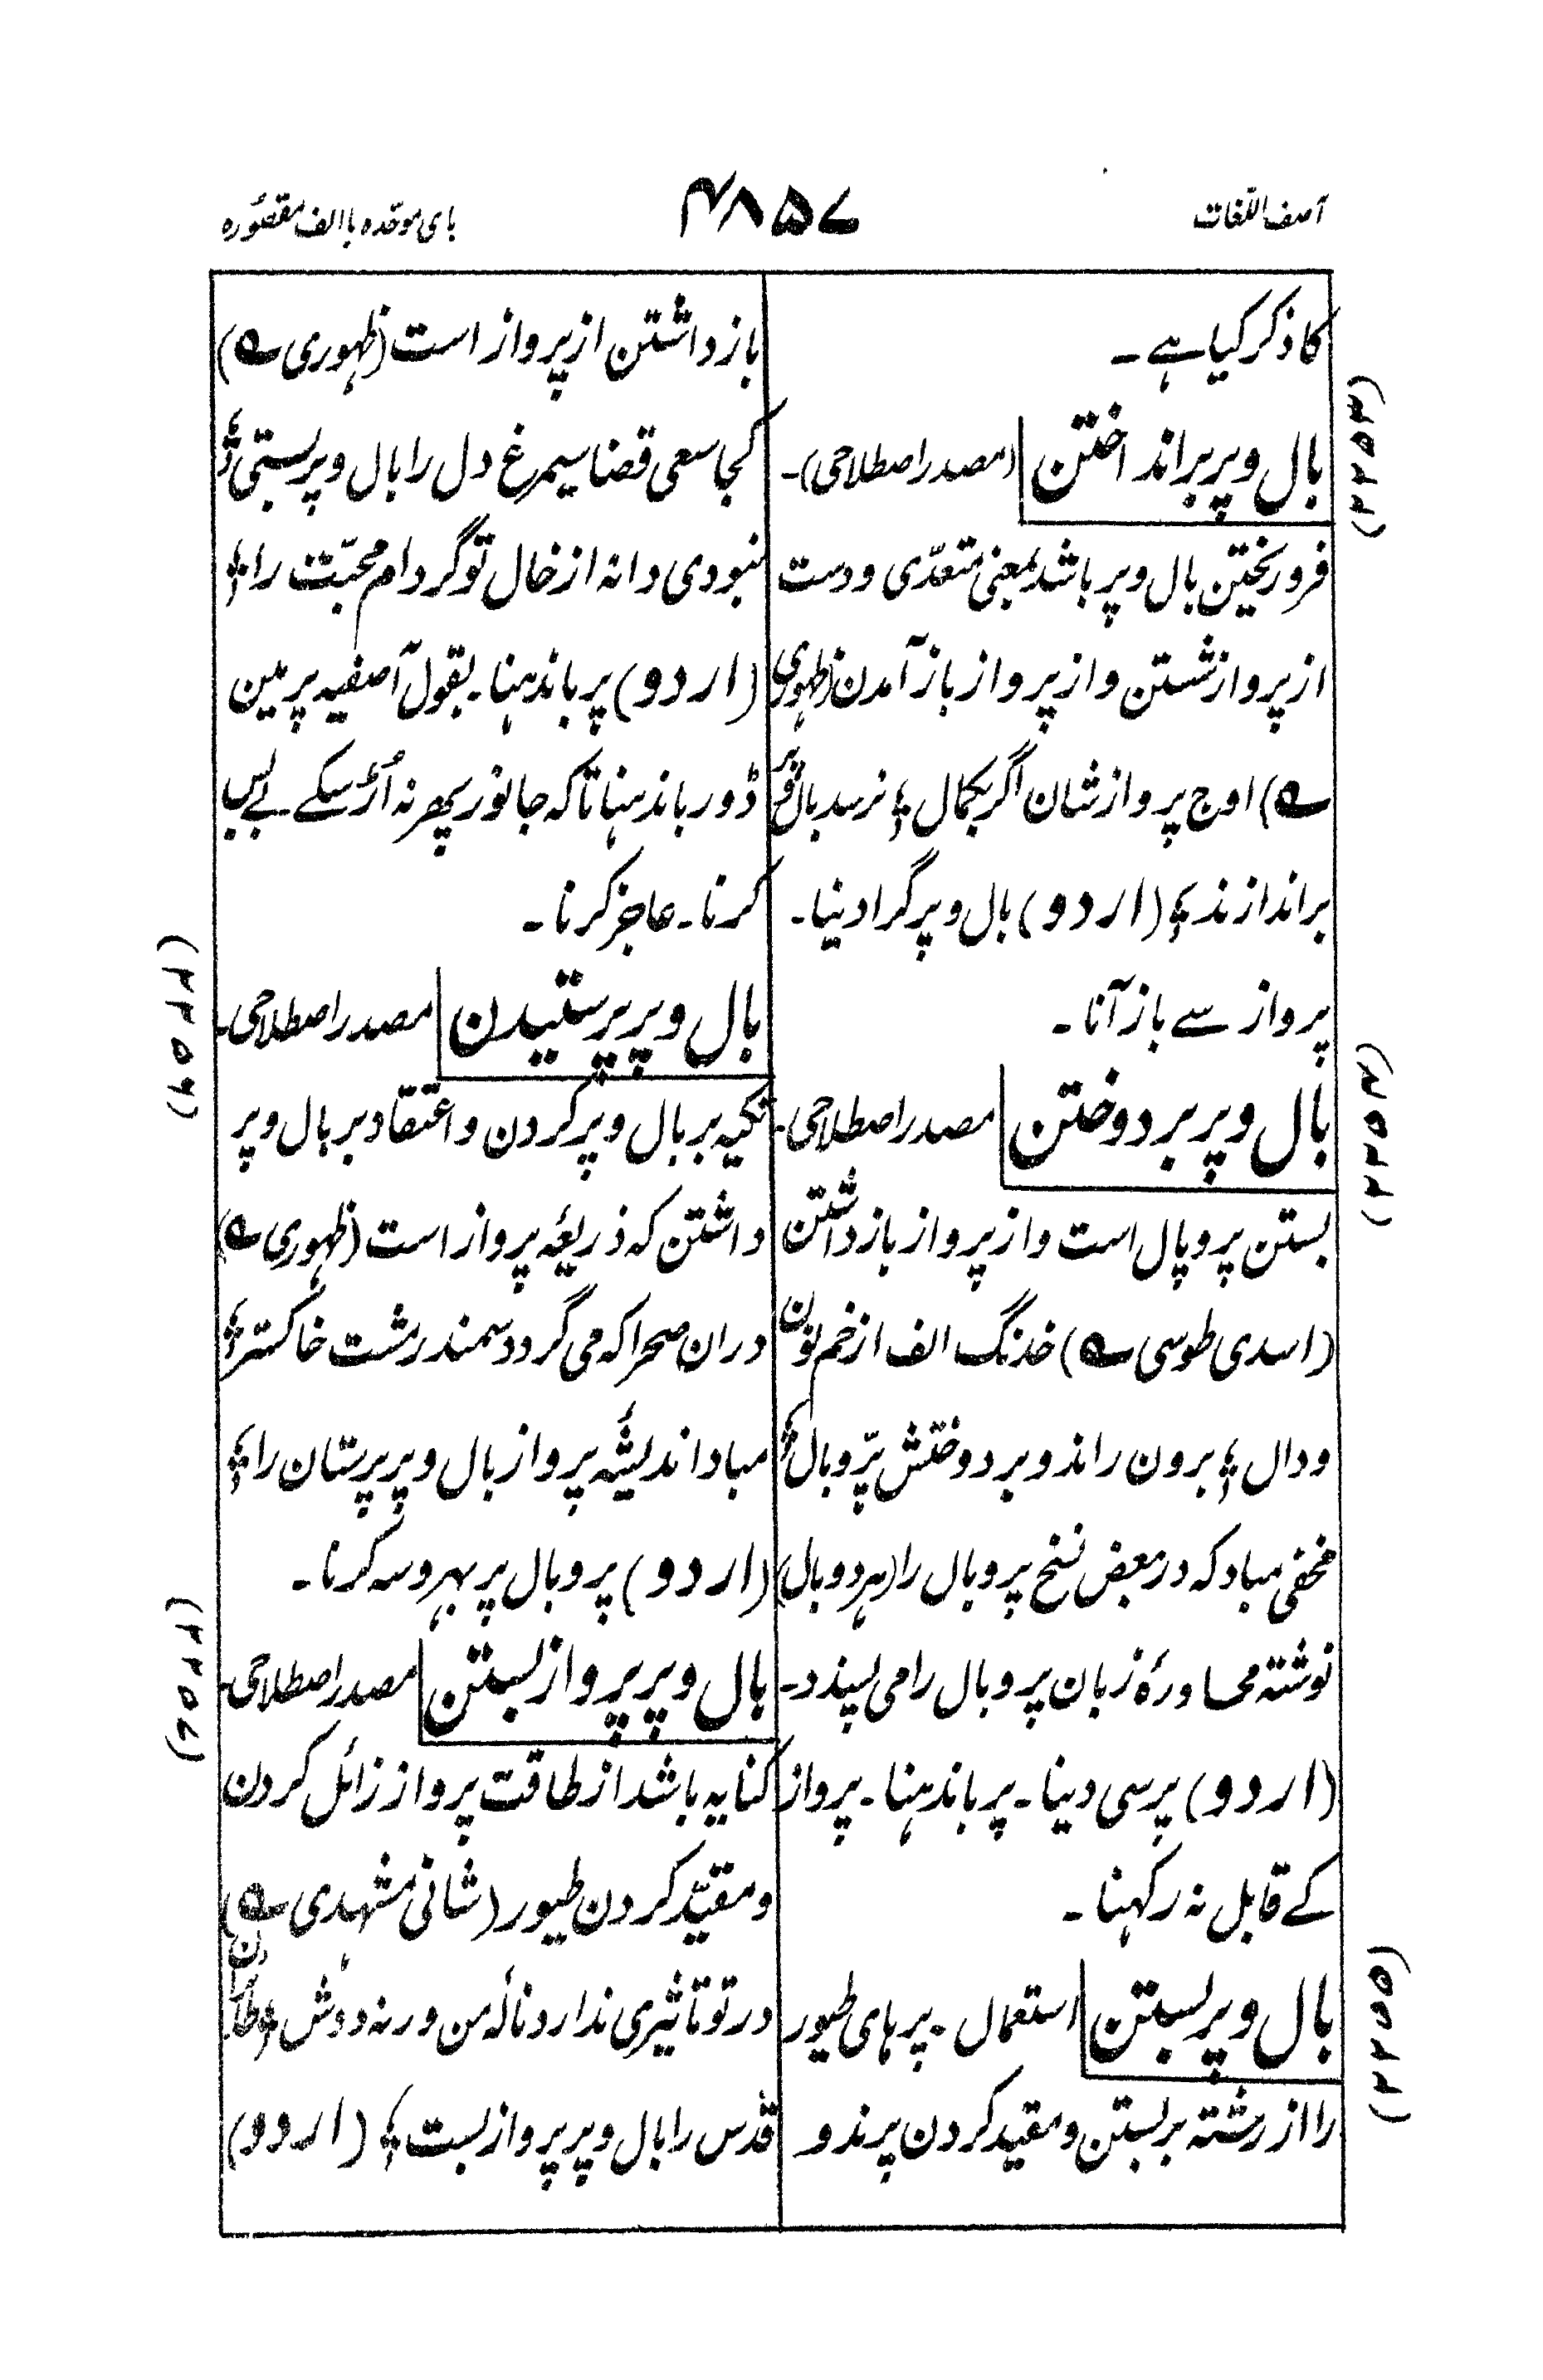 آصف اللّغات
۴۸۵۷
بای موحّده با الف مقصوُره
کا ذکر کیا ہے ۔
بال و پر بر انداختن (مصدر اصطلاحی)۔
فرو ریختن بال و پر باشد بمعنی متعدّی و دست
از پرواز شستن و از پرواز باز آمدن (ظہوری
؎) اوج پرواز شان اگر بکمال ؛ نرسد بال و پر
بر اندازند ؛ (اردو) بال و پر گرا دینا ۔
پرواز سے باز آنا ۔
بال و پر بر دوختن مصدر اصطلاحی۔
بستن پر و بال است و از پرواز باز داشتن
(اسدی طوسی ؎) خدنگ الف از خم نون
و دال ؛ برون راند و بر دوختش پرّ و بال ؛
مخفی مباد کہ در بعض نسخ پر و بال را (ہر دو بال)
نوشتہ محاورۂ زبان پر و بال را می پسندد ۔
(اردو) پر سی دینا ۔ پر باندہنا ۔ پرواز
کے قابل نہ رکہنا ۔
بال و پر بستن استعمال ۔ پرہای طیور
را از رشتہ بر بستن و مقید کردن پرند و
باز داشتن از پرواز است (ظہوری ؎)
کجا سعی قضا سیمرغ دل را بال و پر بستی ؛
نبودی دانہ از خال تو گر دام محبّت را ؛
(اردو) پر باندہنا ۔ بقول آصفیہ پر مین
ڈور باندہنا تاکہ جانور پھر نہ اُڑ سکے ۔ بے بس
کرنا ۔ عاجز کرنا ۔
بال و پر پرستیدن مصدر اصطلاحی۔
تکیہ بر بال و پر کردن و اعتقاد بر بال و پر
داشتن کہ ذریعۂ پرواز است (ظہوری ؎)
دران صحرا کہ می گردد سمندر مشت خاکستر ؛
مباد اندیشۂ پرواز بال و پر پرستان را ؛
(اردو) پر و بال پر بہروسہ کرنا ۔
بال و پر پرواز بستن مصدر اصطلاحی۔
کنایہ باشد از طاقت پرواز زائل کردن
و مقیّد کردن طیور (شانی مشہدی ؎)
در تو تاثیری ندارد نالۂ من ورنہ دوش ؛ طائران
قدس را بال و پر پرواز بست ؛ (اردو)
(۲۲۵۳)
(۲۲۵۴)
(۲۲۵۵)
(۲۲۵۶)
(۲۲۵۷)